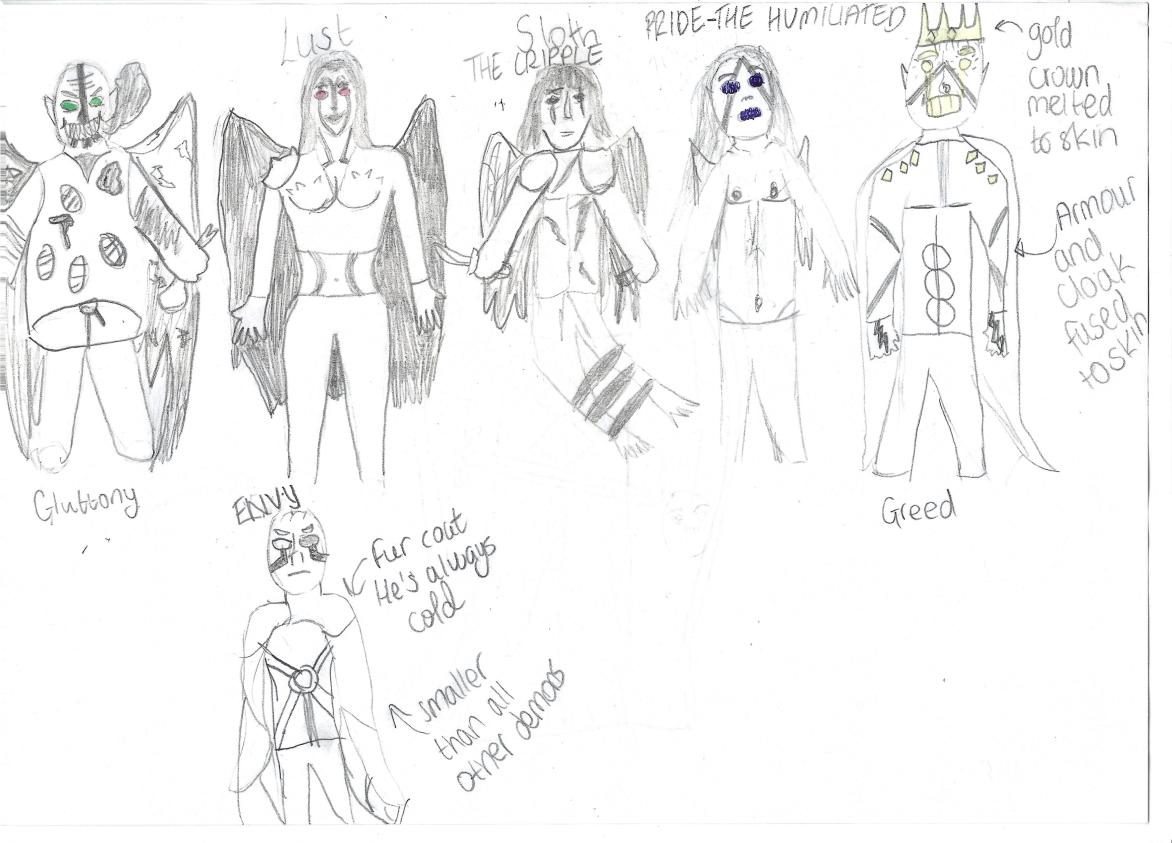 Lust
Sloth
THE CRIPPLE
PRIDE-THE HUMILIATED
gold
crown
melted
to skin
Armour
and
cloak
fused
to skin
Gluttony
Greed
ENVY
Fur coat
He's always
cold
smaller
than all
other demons